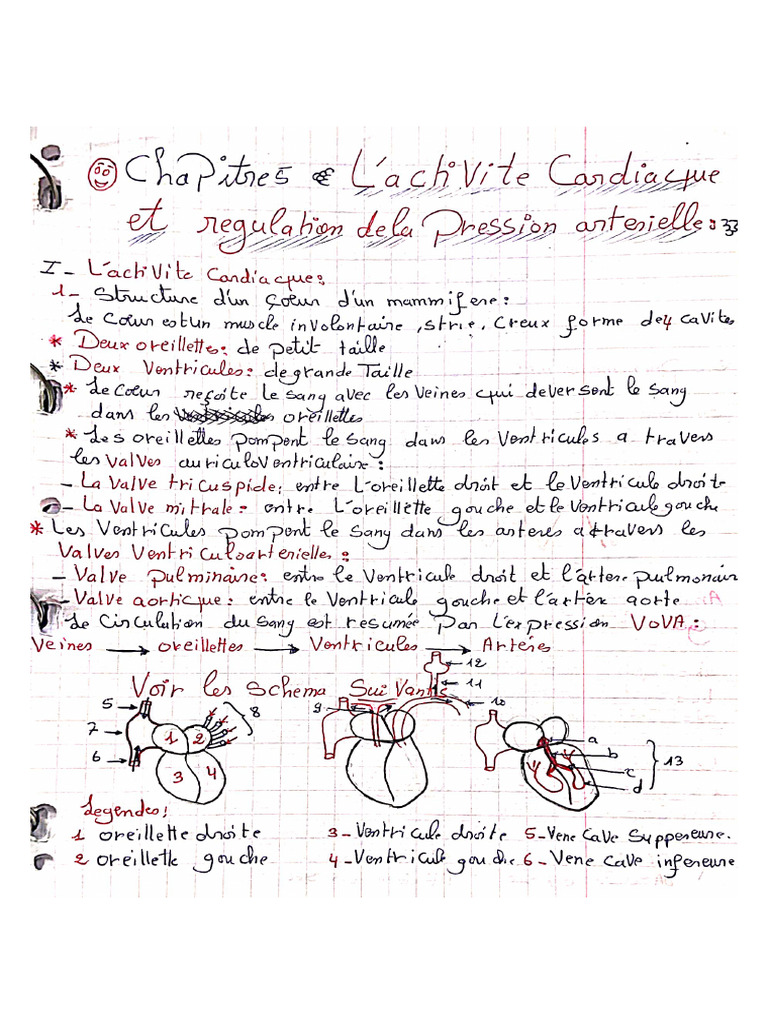 Chapitres : L'activite Cardiacque
et regulation dela Pression arterielle:
I - L'activite Cardiacque:
1- Structure d'un Çoeur d'un mammifere:
Le Coeur est un muscle involontaire, strie, Creux forme de 4 cavites
* Deux oreillettes: de petit taille
* Deux Ventricules: de grande Taille
* Le Coeur reçoite le sang avec les Veines qui deversent le sang
dans les oreillettes
* Les oreillettes pompent le sang dans les Ventricules a travers
les Valves auriculoventriculaire:
- La Valve tricuspide: entre L'oreillette droit et le Ventricule droite
- La Valve mitrale: entre L'oreillette gouche et le Ventricule gouche
* Les Ventricules pompent le sang dans les arteres a travers les
Valves Ventriculoarterielles:
- Valve pulminaire: entre le Ventricule droit et l'artere pulmonair
- Valve aortique: entre le Ventricule gouche et l'artère aorte
Le Circulation du sang est resumée Par l'expression VOVA:
Veines → oreillettes → Ventricules → Artéres
Voir les Schema Suivants
12
11
10
5
8
9
7
1 2
a
b
13
6
3 4
c
d
Legendes:
1 oreillette droite 3 - Ventricule droite 5 - Vene Cave Suppereure.
2 oreillette gouche 4 - Ventricule gouche 6 - Vene Cave infereure